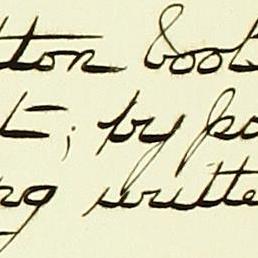 tton boo
t; by po
ng writte